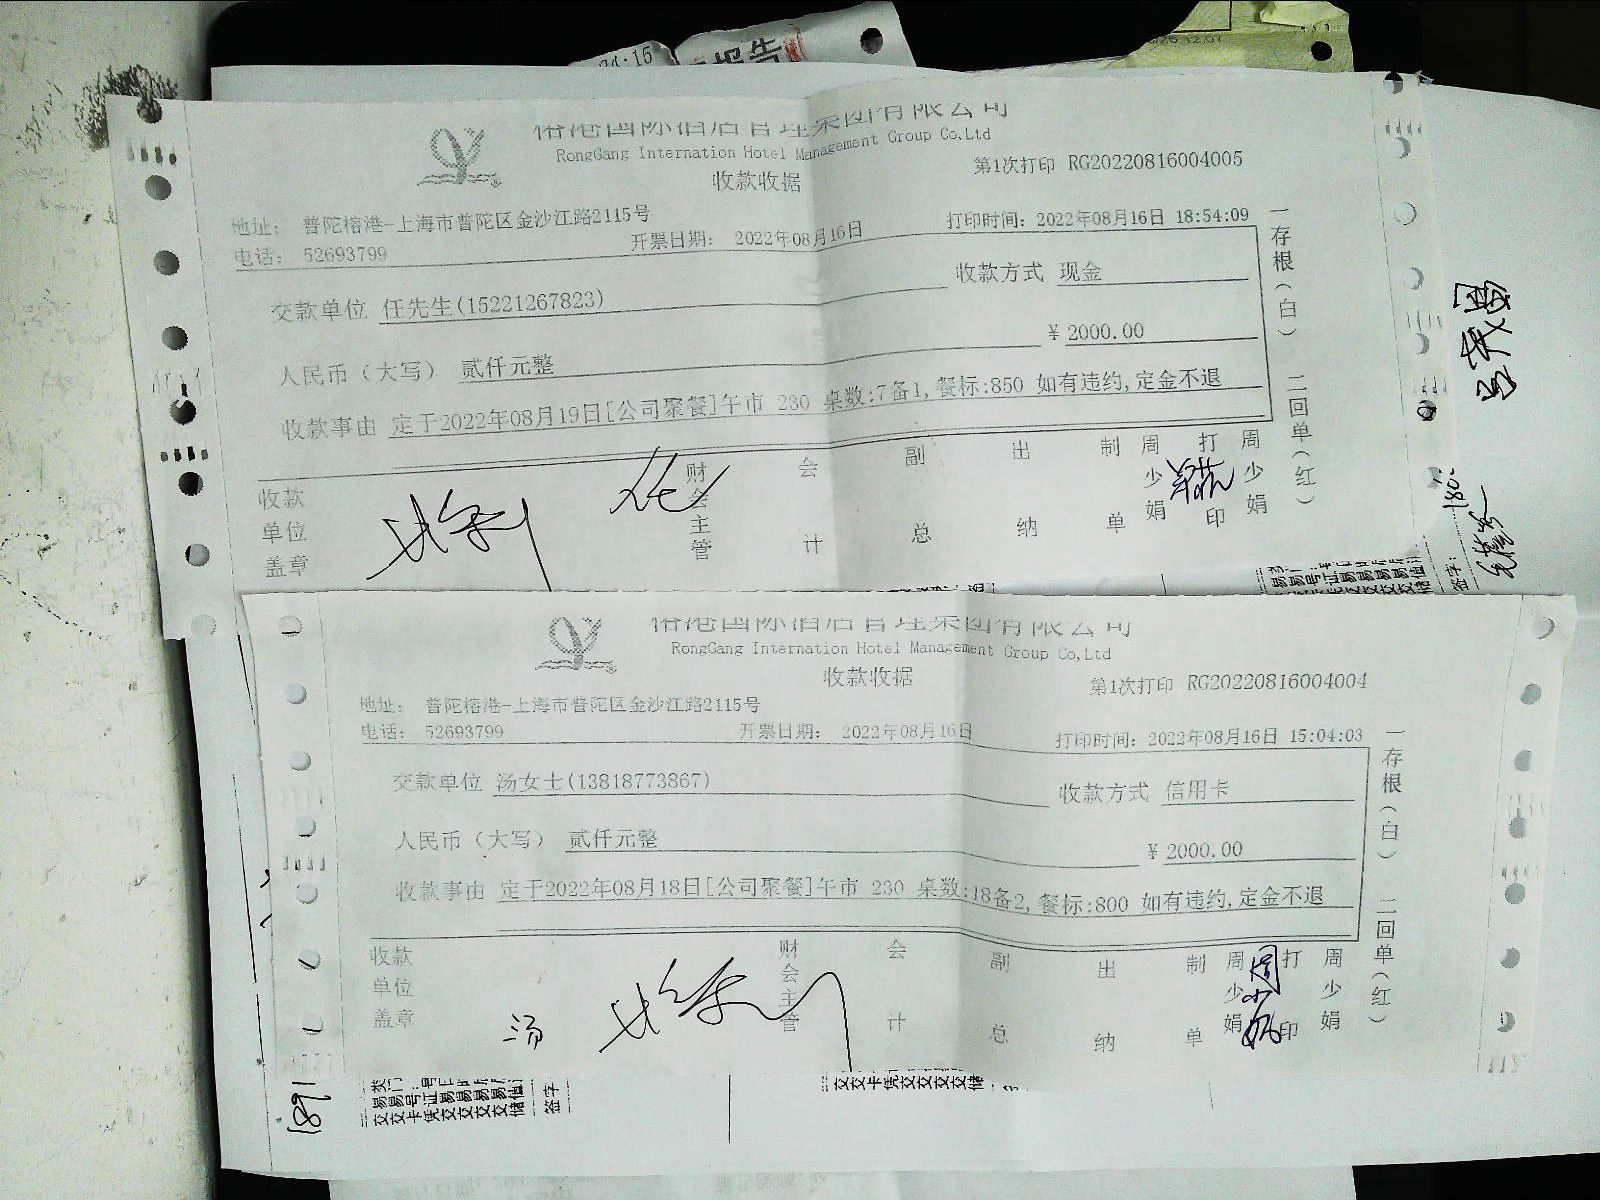 24:15
报告
榕港国际酒店管理集团有限公司
RongGang Internation Hotel Management Group Co,Ltd
收款收据
第1次打印 RG20220816004005
地址: 普陀榕港-上海市普陀区金沙江路2115号
电话: 52693799
开票日期: 2022年08月16日
打印时间: 2022年08月16日 18:54:09
交款单位 任先生(15221267823)
收款方式 现金
人民币(大写) 贰仟元整
¥ 2000.00
收款事由 定于2022年08月19日[公司聚餐]午市 230 桌数:7备1,餐标:850 如有违约,定金不退
一存根(白) 二回单(红)
收款单位盖章
财会主管
会计
副总
出纳
制单
周少娟
打印
周少娟
任
签字:
榕港国际酒店管理集团有限公司
RongGang Internation Hotel Management Group Co,Ltd
收款收据
第1次打印 RG20220816004004
地址: 普陀榕港-上海市普陀区金沙江路2115号
电话: 52693799
开票日期: 2022年08月16日
打印时间: 2022年08月16日 15:04:03
交款单位 汤女士(13818773867)
收款方式 信用卡
人民币(大写) 贰仟元整
¥ 2000.00
收款事由 定于2022年08月18日[公司聚餐]午市 230 桌数:18备2,餐标:800 如有违约,定金不退
一存根(白) 二回单(红)
收款单位盖章
财会主管
会计
副总
出纳
制单
周少娟
周少娟
打印
周少娟
汤
1891
签字